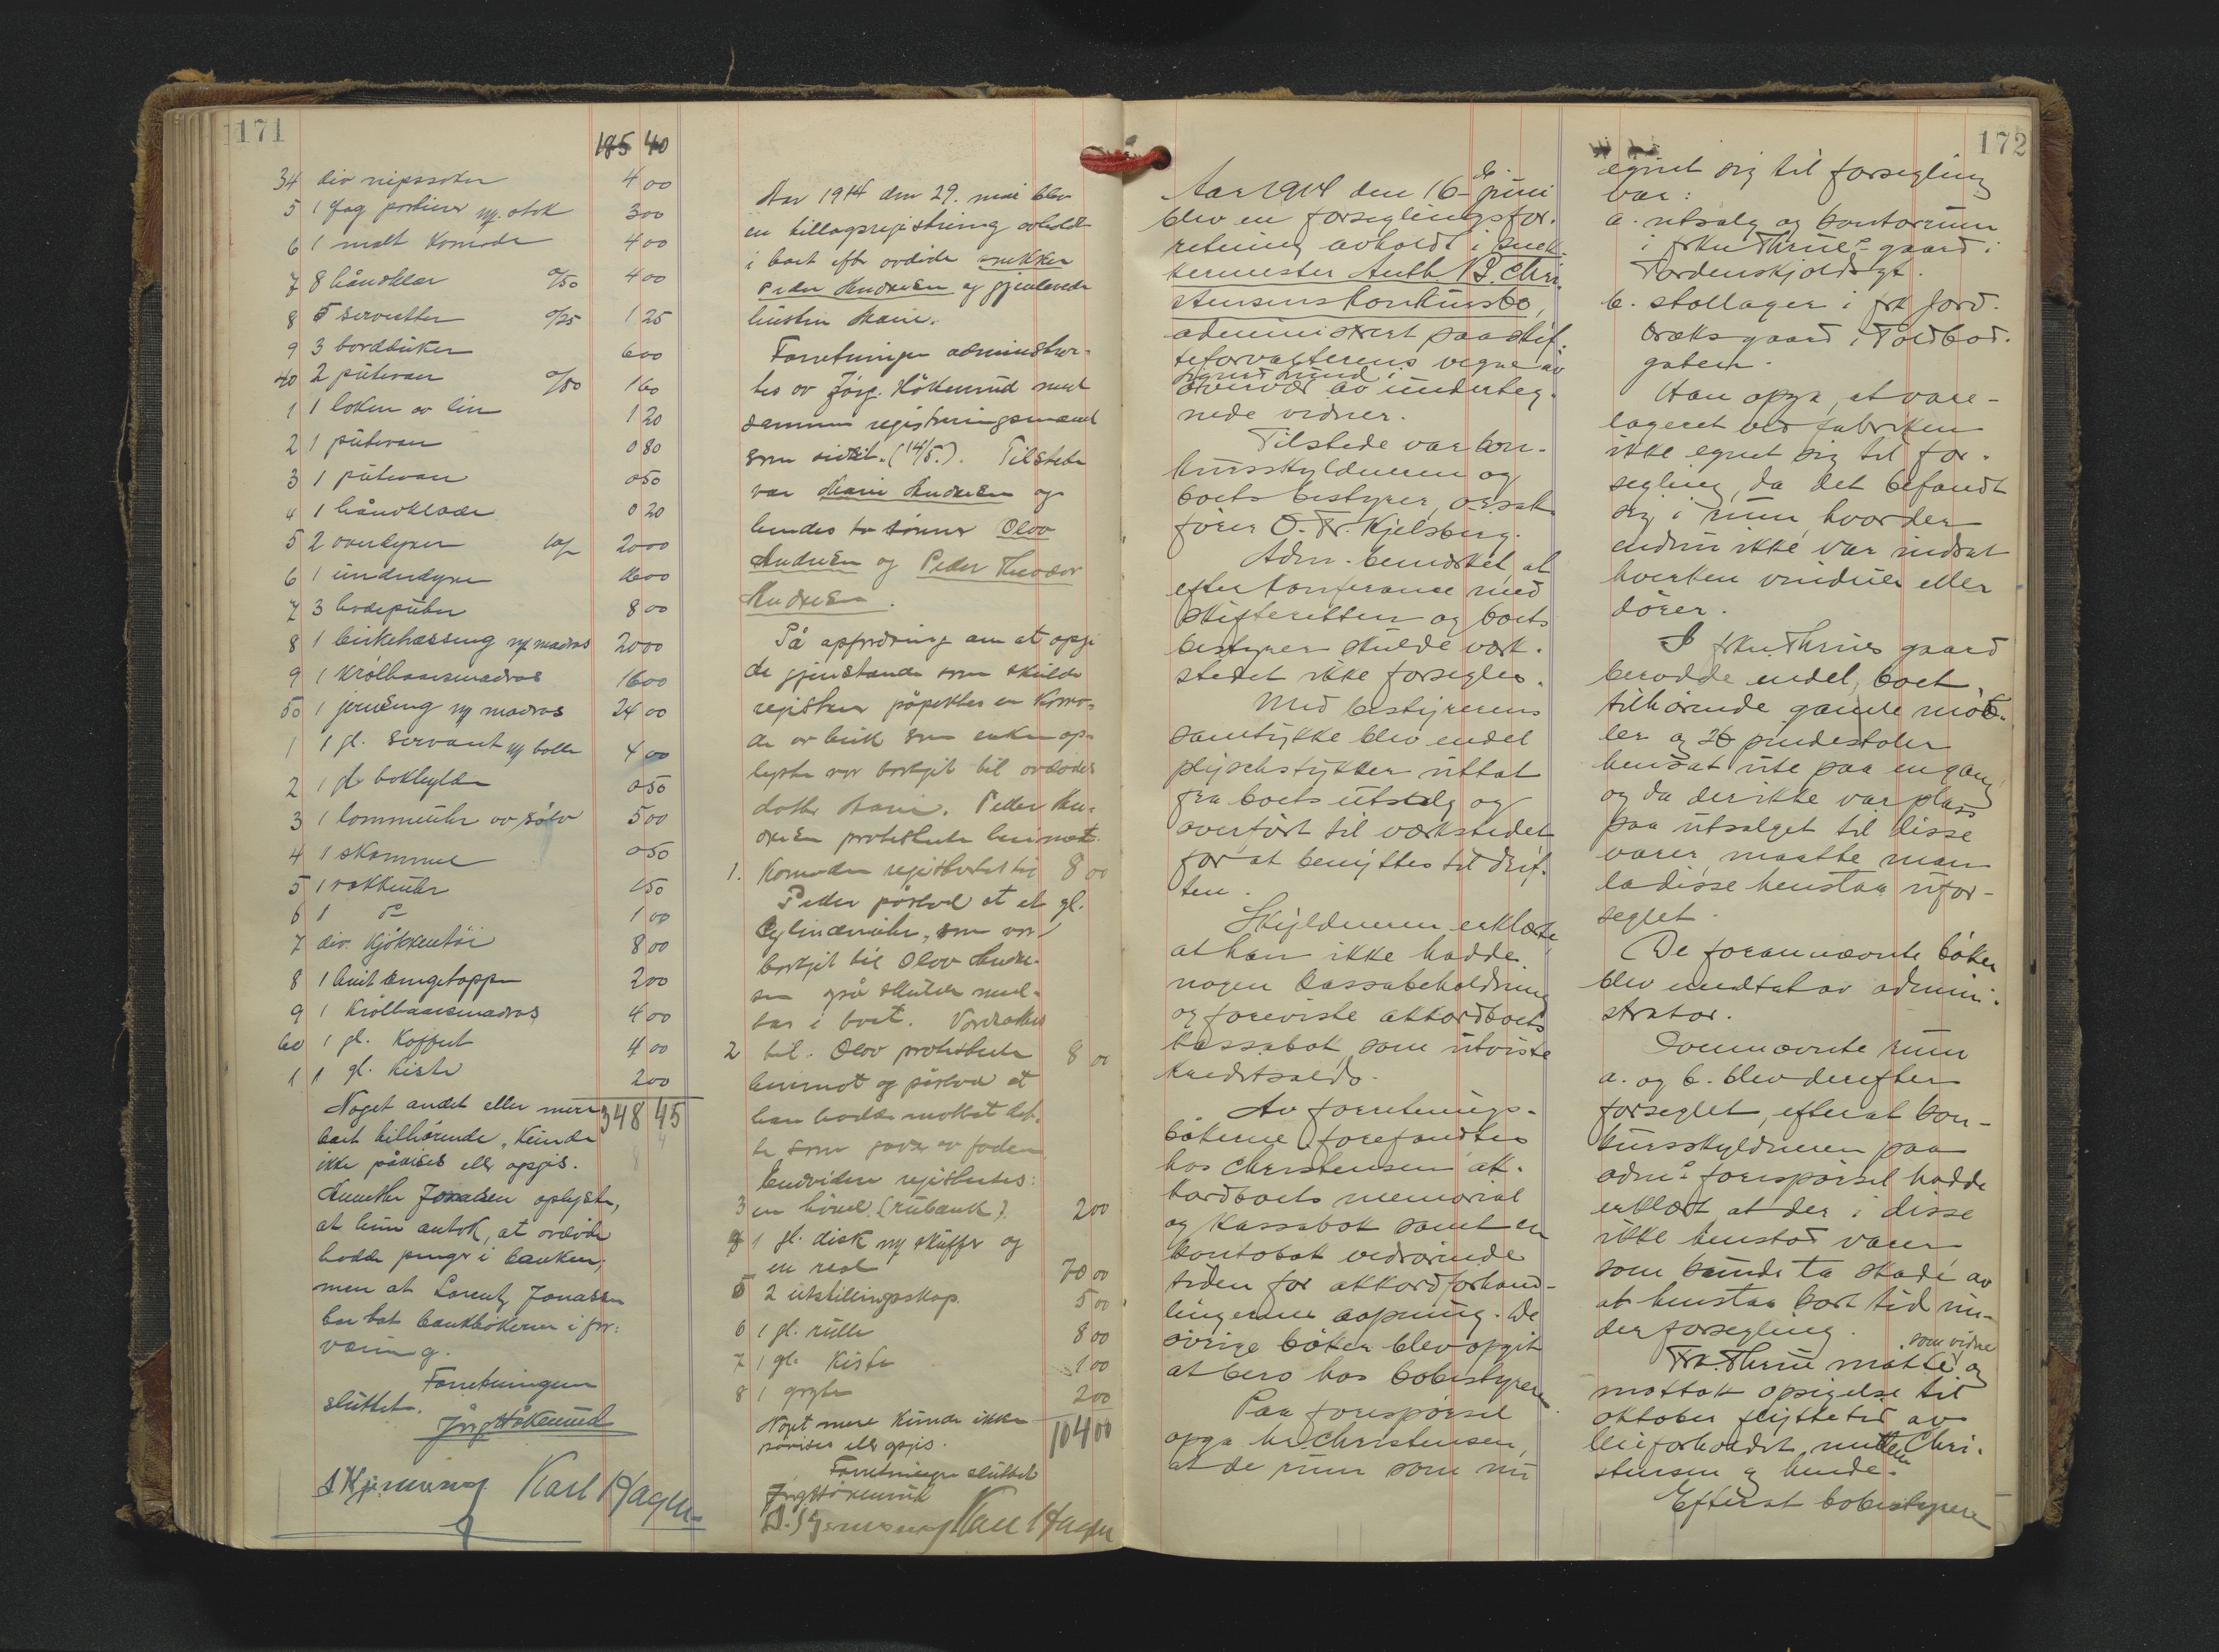 171
185 40
34 div nipssaker 4 00
5 1 fag portierer m/ stok 3 00
6 1 malt Komode 4 00
7 8 håndklær a/50 4 00
8 5 servietter a/25 1 25
9 3 bordduker 6 00
40 2 putevar a/80 1 60
1 1 laken av lin 1 20
2 1 putevar 0 80
3 1 putevar 0 50
4 1 håndklæde 0 20
5 2 overdyner 10/- 20 00
6 1 underdyne 16 00
7 3 hodeputer 8 00
8 1 birkehasseng m/ madras 20 00
9 1 krølhaarsmadras 16 00
50 1 jernseng m/ madras 24 00
1 1 gl. servant m/ bolle 4 00
2 1 gl bokhylde 0 50
3 1 lommeuhr av sølv 5 00
4 1 skammel 0 50
5 1 vækkeuhr 1 50
6 1 do 1 00
7 div. kjøkkentøi 8 00
8 1 hvit sengetæppe 2 00
9 1 krølhaarsmadras 4 00
60 1 gl. Koffert 4 00
1 1 gl. kiste 2 00
Noget andet eller mere 348 45
boet tilhørende, kunde
ikke påvises eller opgis.
Annethe Jonassen oplyste,
at hun antok, at avdøde
hadde penger i banken,
men at Lorentz Jonassen
har tat bankbøkerne i for-
varing.
Forretningen
sluttet.
Jørg Håkenrud
Karl Hagen
Aar 1914 den 29. mai blev
en tillægsregistrering avholdt
i boet efter avdøde snekker
Peder Andresen og gjenlevende
hustru Marie.
Forretningen administrer-
tes av Jørg. Håkenrud med
samme registreringsmænd
som sidst. (14/5.). Tilstede
var Marie Andresen og
hendes to sønner Olav
Andresen og Peder Theodor
Andresen.
På opfordring om at opgi
de gjenstande som skulde
registreres påpektes en Komo-
de av birk som enken op-
lyste var bortgit til avdødes
datter Marie. Peder An-
dresen protesterte herimot.
1. Komoden registrertes til 8 00
Peder påstod at et gl.
Cylinderuhr, som var
bortgit til Olav Andre-
sen også skulde med-
tas i boet. Værdsattes
2 til. Olav protesterte 8 00
herimot og påstod at
han hadde mottat det-
te som gave av faderen
Endvidere registrertes:
3 en høvel (rubank) 2 00
4 1 gl. disk m/ skuffer og
en reol 70 00
5 2 utstillingsskap 5 00
6 1 gl. rulle 8 00
7 1 gl. Kiste 1 00
8 1 gryte 2 00
Noget mere kunde ikke 104 00
påvises eller opgis.
Forretningen sluttet
Jørg Håkenrud
Karl Hagen
172
Aar 1914 den 16de juni
blev en forseglingsfor-
retning avholdt i snek-
kermester Anth. B. Chri-
stensens konkursbo,
administrert paa skif-
teforvalterens vegne av
Sigurd Lund i
overvær av underteg-
nede vidner.
Tilstede var kon-
kursskyldneren og
boets bestyrer, o.r.sak-
fører O. Fr. Kjelsberg.
Adm. bemerket, at
efter konferance med
skifteretten og boets
bestyrer skulde verk-
stedet ikke forsegles.
Med bestyrerens
samtykke blev endel
plyschstykker uttat
fra boets utsalg og
overført til verkstedet
for at benyttes til drif-
ten.
Skyldneren erklærte
at han ikke hadde
nogen kassabeholdning
og foreviste akkordboets
kassabok som utviste
kreditsaldo.
Av forretnings-
bøkerne forefandtes
hos Christensen ak-
kordboets memorial
og kassabok samt en
kontobok vedrørende
tiden før akkordforhand-
lingernes aapning. De
øvrige bøker blev opgit
at bero hos bobestyreren.
Paa forespørsel
opga hr. Christensen,
at de rum som nu
egnet sig til forsegling
var:
a. utsalg og kontorrum
i frkn Thrues gaard i
Tordenskjoldsgt.
b. stollager i frk Jord-
bræks gaard i Toldbod-
gaten.
Han opga, at vare-
lageret ved fabriken
ikke egnet sig til for-
segling, da det befandt
sig i rum, hvor der
endnu ikke var indsat
hverken vinduer eller
dører.
I frkn. Thrues gaard
berodde endel, boet
tilhørende gamle møb-
ler og 26 pindestoler
hensat ute paa en gang
og da der ikke var plass
paa utsalget til disse
varer, maatte man
la disse henstaa ufor-
seglet.
De forannævnte bøker
blev medtat av admini-
strator.
Ovennævnte rum
a. og b. blev derefter
forseglet, efterat kon-
kursskyldneren paa
adms forespørsel hadde
erklært at der i disse
ikke henstod varer
som kunde ta skade av
at henstaa kort tid un-
der forsegling.
som vidne
Frk. Thrue møtte og
mottok opsigelse til
oktober flyttetid av
leieforholdet mellem Chri-
stensen og hende.
Efterat bobestyrere